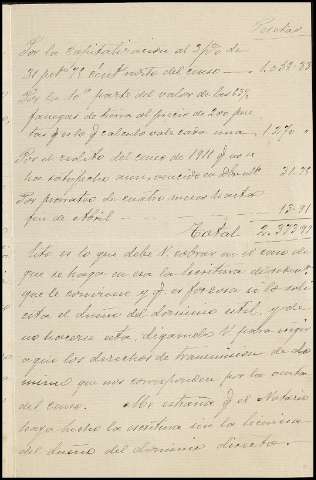 Pesetas
Por la capitalizacion al 3 p% de
31 ptas 78 cent rédito del censo — 1.059-33
Por la 10ª parte del valor de las 63½
fanegas de tierra al precio de 200 pue
tas q esto q calculo vale cada una 1270 "
Por el rédito del censo de 1911 q no se
ha satisfecho aun, vencido en 31-78
Por prorrateo de cuatro meses hasta
fin de Abril — 13-91
Total 2.373 91
Esto es lo que debe V. cobrar en el caso de
que se haga en esa la escritura
que le conviene y q es forzosa si lo soli-
cita el dueño del dominio util, y de
no hacerse esta, digamelo V para exigir
aqui los derechos de transmision de do
minio que nos corresponden por la venta
del censo. Me estraña q el Notario
haya hecho la escritura sin la licencia
del dueño del dominio directo.